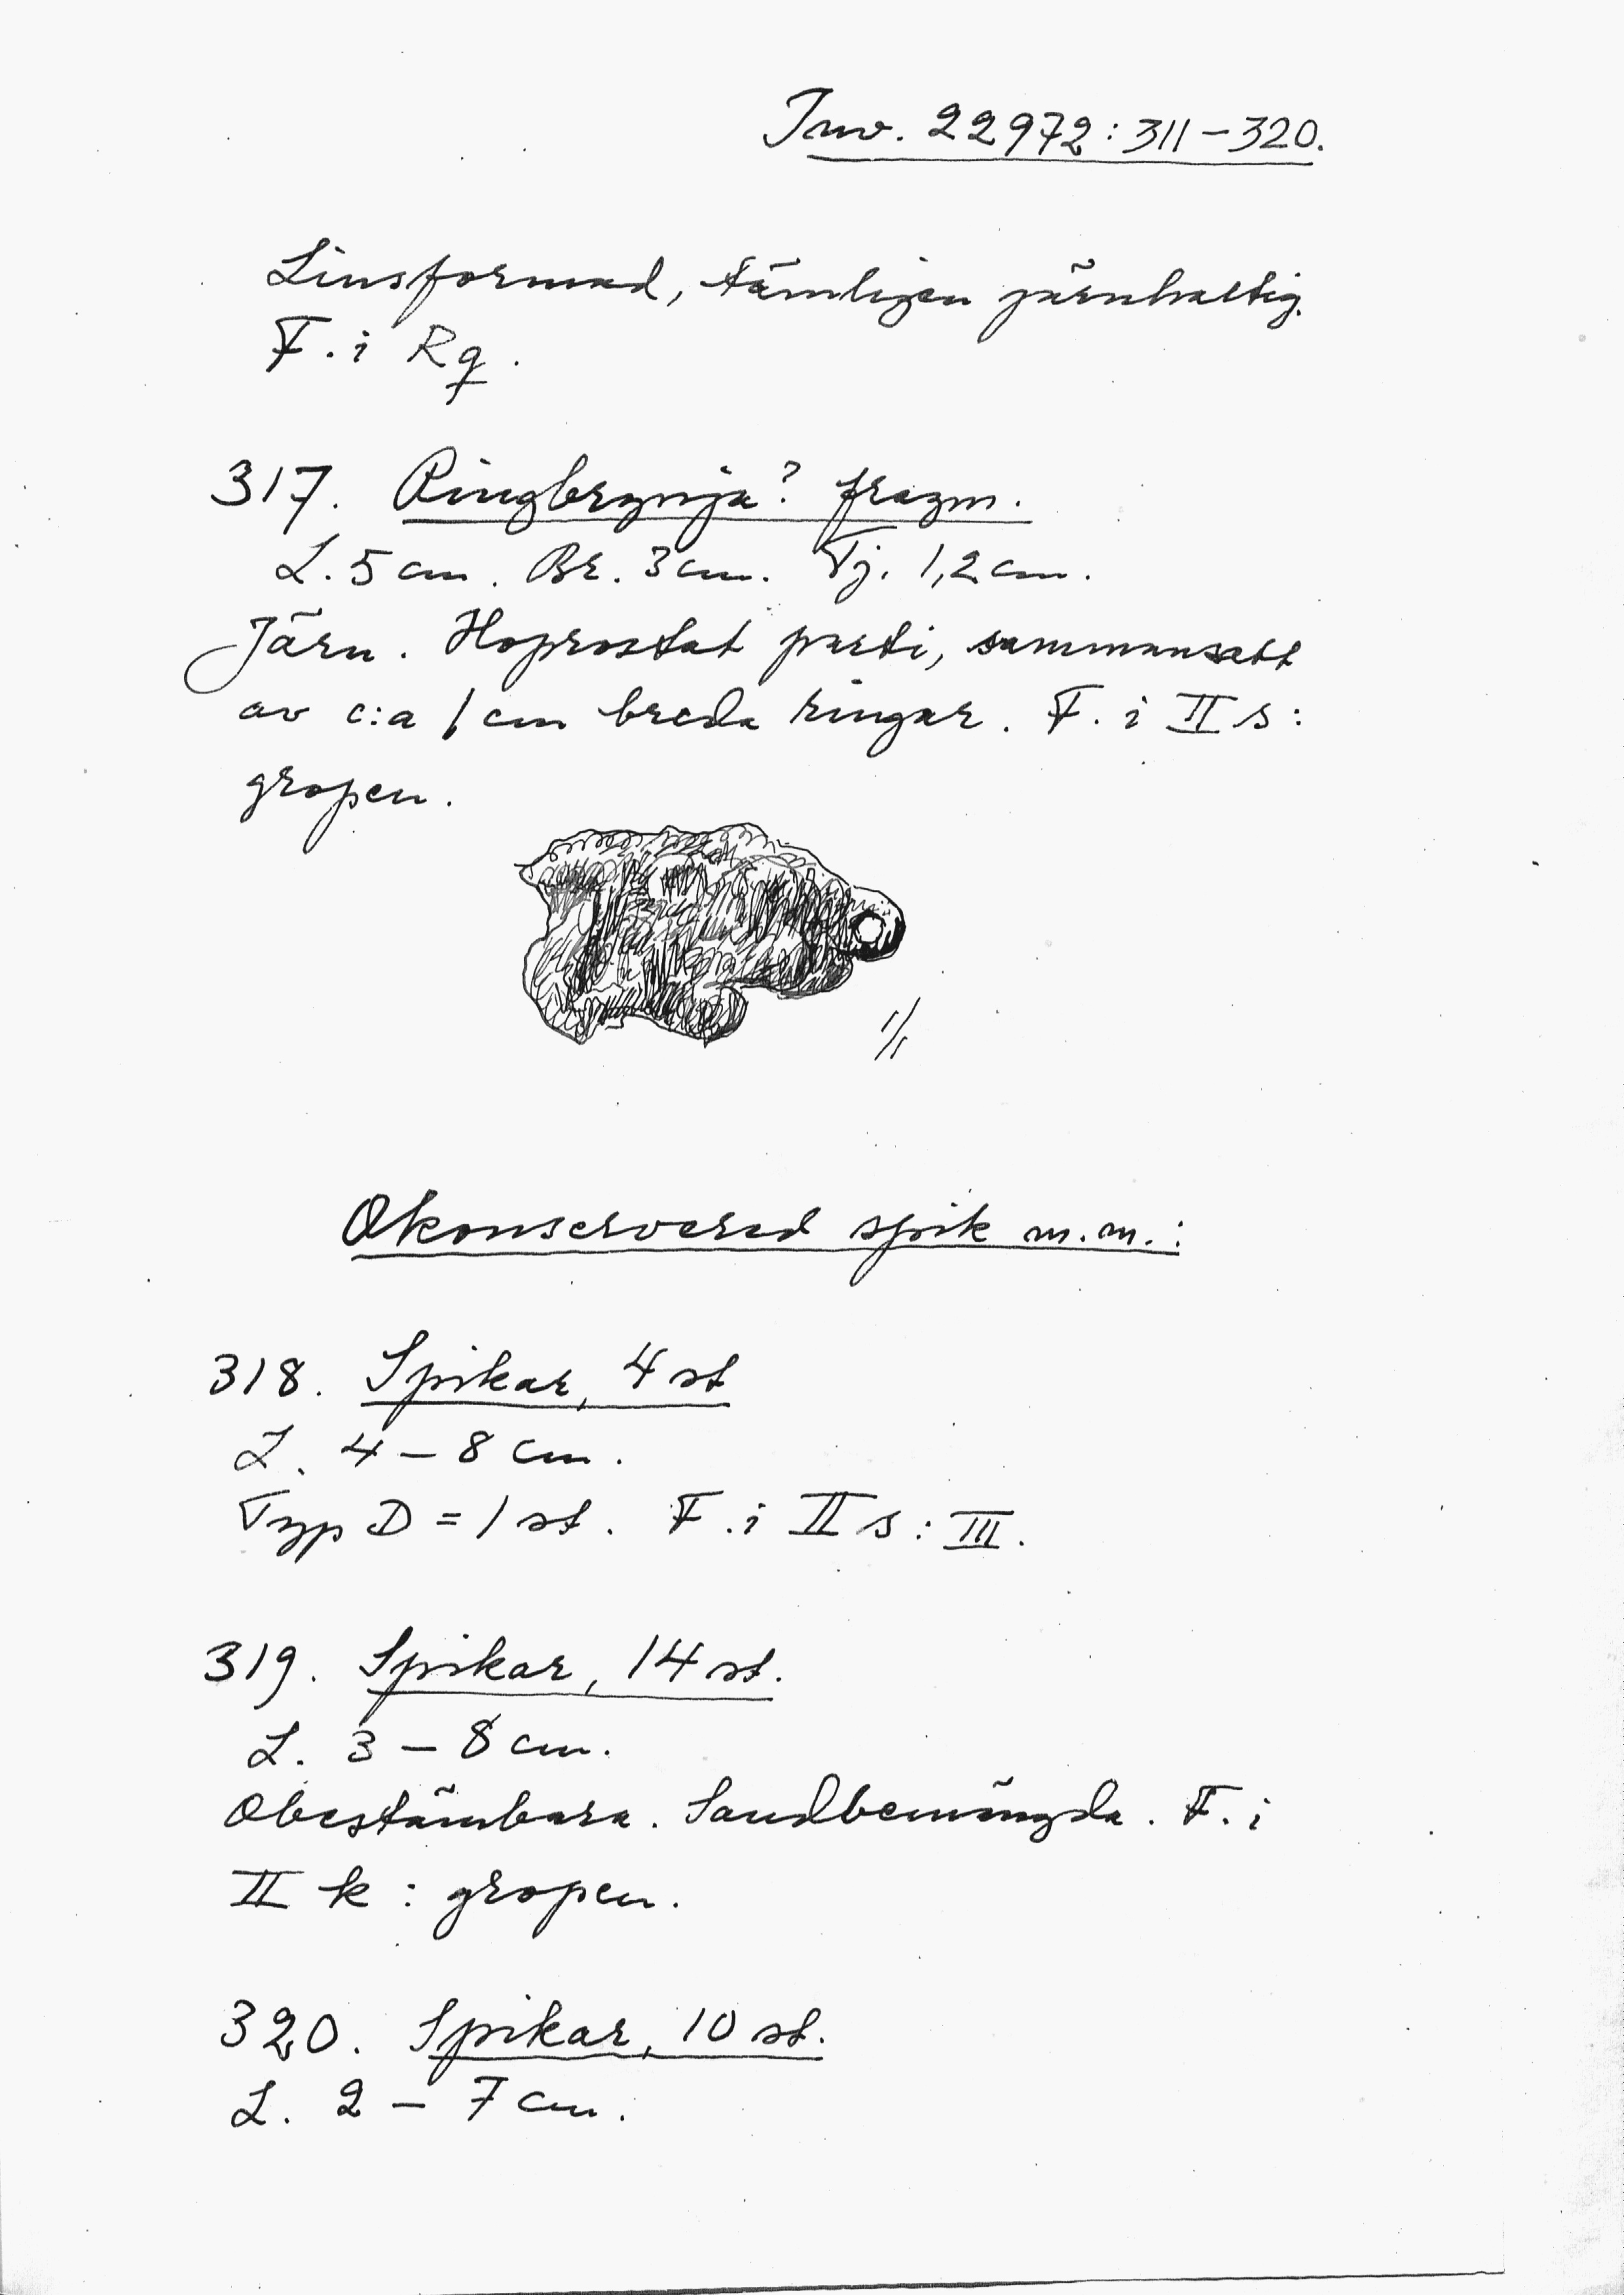 Inv. 22972:311-320.
Linsformad, tämligen järnhaltig.
F. i Rq.
317. Ringbrynja? fragm.
L. 5 cm. Br. 3 cm. Tj. 1,2 cm.
Järn. Hoprostat parti, sammansatt
av c:a 1 cm breda ringar. F. i II s:
gropen.
1/1
Okonserverad spik m.m.:
318. Spikar, 4 st
L. 4-8 cm.
Typ D = 1 st. F. i II s: III.
319. Spikar, 14 st.
L. 3-8 cm.
Obestämbara. Sandbemängda. F. i
II k: gropen.
320. Spikar, 10 st.
L. 2-7 cm.